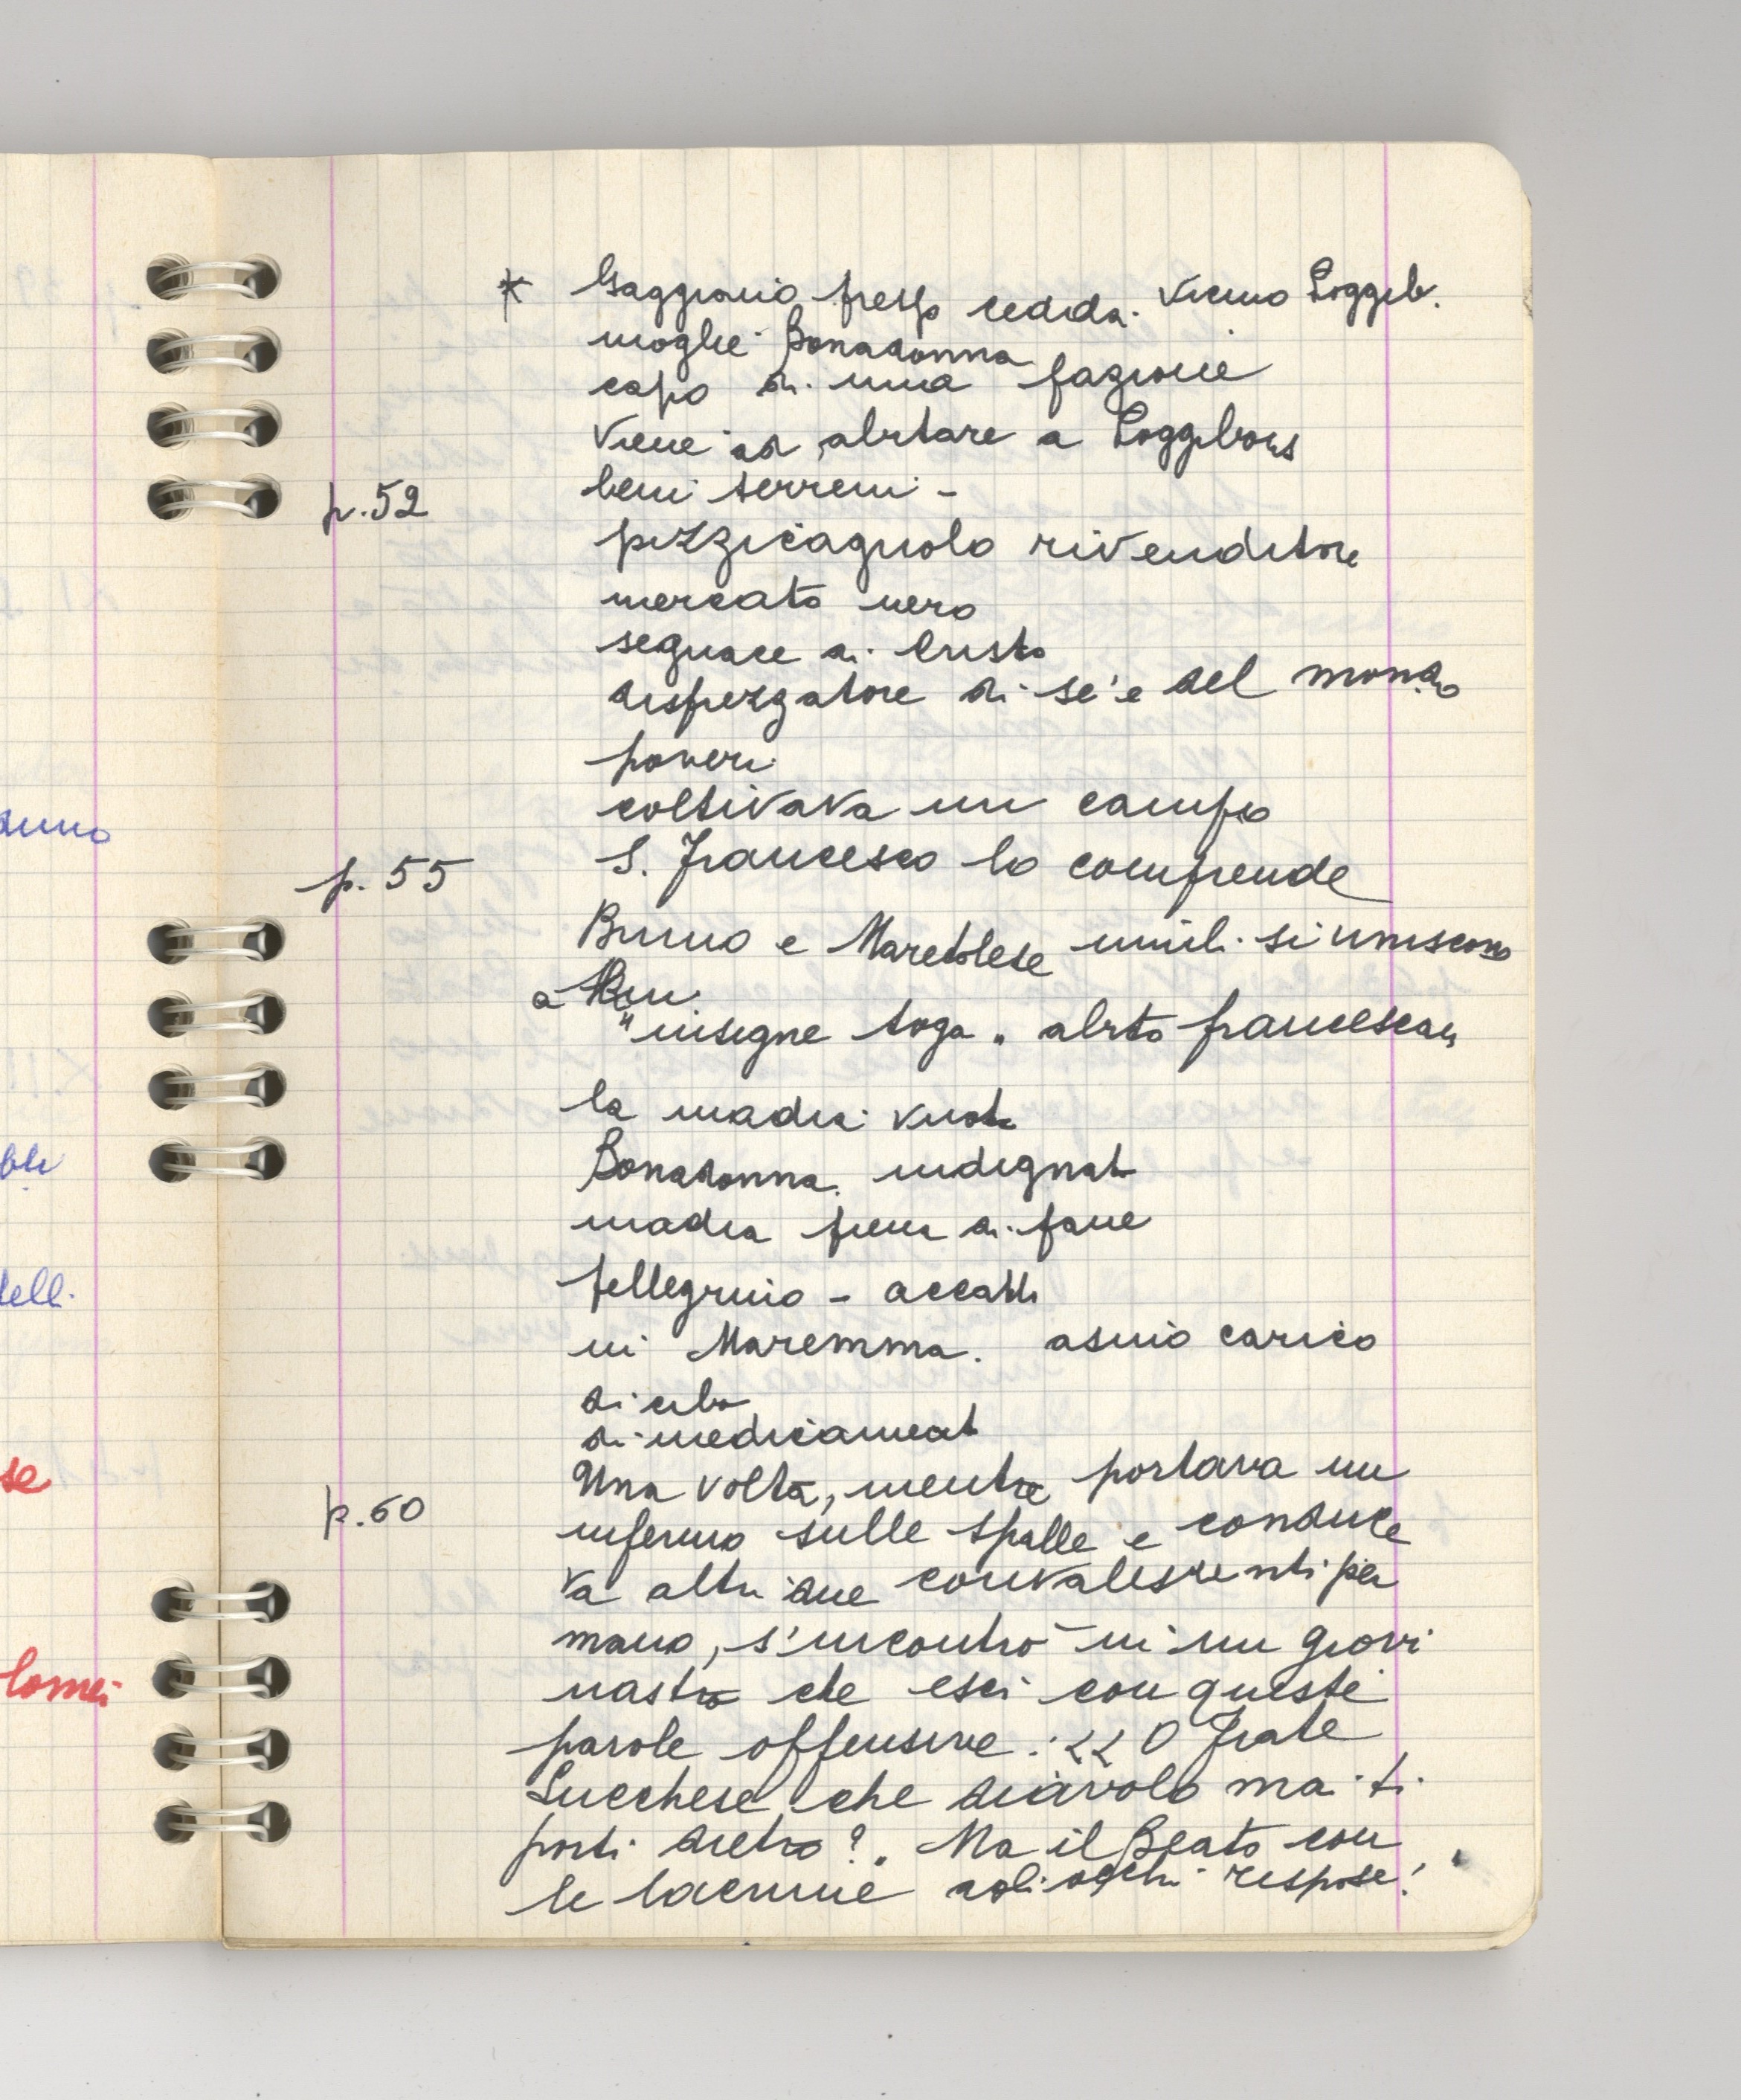 * Gaggiano presso vicino Poggib.
moglie Bonadonna
capo di una fazione
viene ad abitare a Poggibons
p.52 beni terreni -
pizzicagnolo rivenditore
mercato nero
seguace di Cristo
disprezzatore di se' e del mondo
poveri
coltivava un campo
p. 55 S. Francesco lo comprende
Bruno e Maretolese umili si uniscono
a
"insigne toga" abito francescan
la madia vuota
Bonadonna indignata
madia piena di pane
pellegrino - accatti
in Maremma. asino carico
di cibo
di medicament
p.60 Una volta, mentre portava un
infermo sulle spalle e conduce
va altri due convalescenti per
mano, s'incontrò in un giovi
nastro che esci con queste
parole offensive: << O Frate
Lucchese che diavolo mai ti
porti dietro?. Ma il Beato con
le lacrime agli occhi rispose:
anno
delli
se
lomei